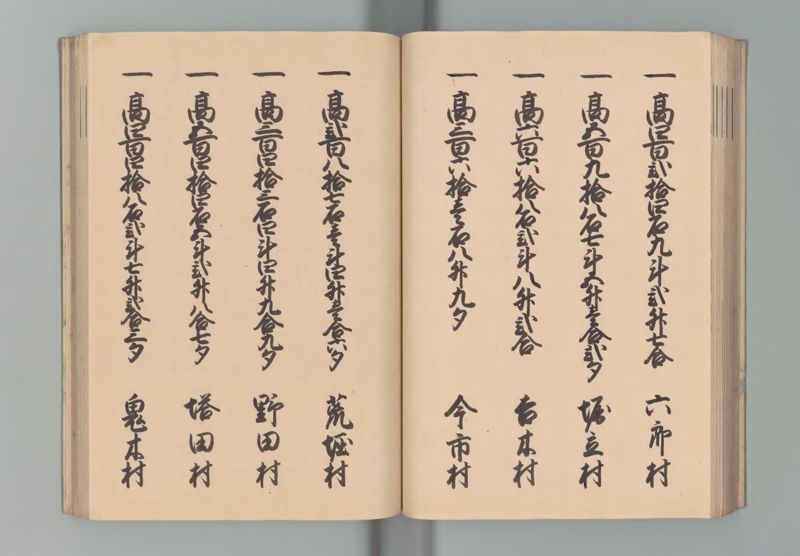 一高四百弐拾四石九斗弐升七合 六郎村
一高五百九拾八石七斗五升壱合弐夕 堀立村
一高六百六拾八石弐斗八升弐合 吉木村
一高三百六拾壱石八升九夕 今市村
一高弐百八拾七石壱斗四升壱合六夕 荒堀村
一高三百四拾三石四斗四升九合九夕 野田村
一高五百四拾四石五斗弐升八合七夕 塔田村
一高四百四拾八石弐斗七升弐合三夕 鬼木村